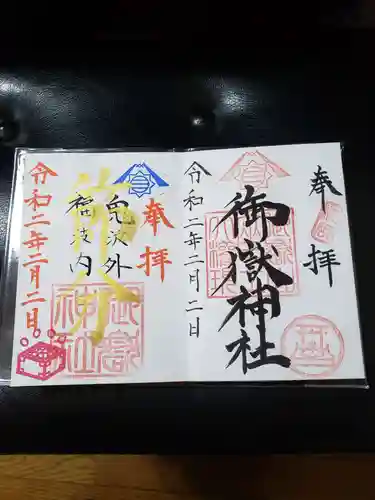 奉拝
御嶽神社
令和二年二月二日
奉拝
鬼は外
福は内
節分
令和二年二月二日
御嶽神社